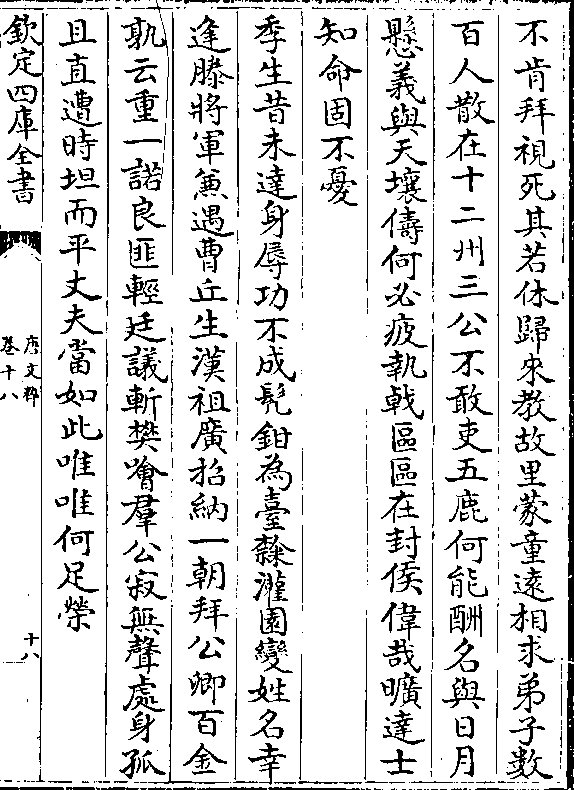 不肯拜視死其若休歸來教故里蒙童遠相求弟子數
百人散在十二州三公不敢吏五鹿何能酬名與日月
懸義與天壤儔何必疲執戟區區在封侯偉哉曠達士
知命固不憂
季生昔未達身辱功不成髠鉗為臺隸灌園變姓名幸
逢滕將軍兼遇曹丘生漢祖廣招納一朝拜公卿百金
孰云重一諾良匪輕廷議斬樊噲羣公寂無聲處身孤
且直遭時坦而平丈夫當如此唯唯何足榮
欽定四庫全書
唐文粹
卷十八
十八